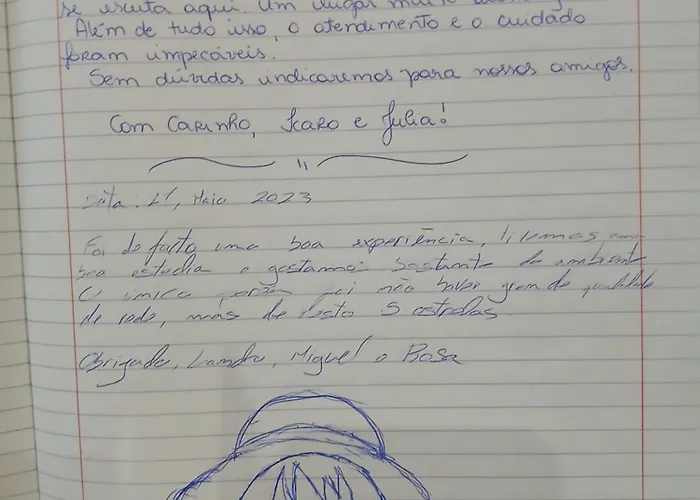 se escuta aqui. Um lugar
Além de tudo isso, o atendimento e o cuidado
foram impecáveis.
Sem dúvidas indicaremos para nossos amigos.
Com Carinho, Icaro e Julia!
Data: 21, Maio 2023
Foi de facto uma boa experiência, tivemos uma
boa estadia e gostamos bastante do ambient
O único porém foi não haver grande qualidade
de rede, mas de resto 5 estrelas.
Obrigado, Landu, Miguel e Rosa